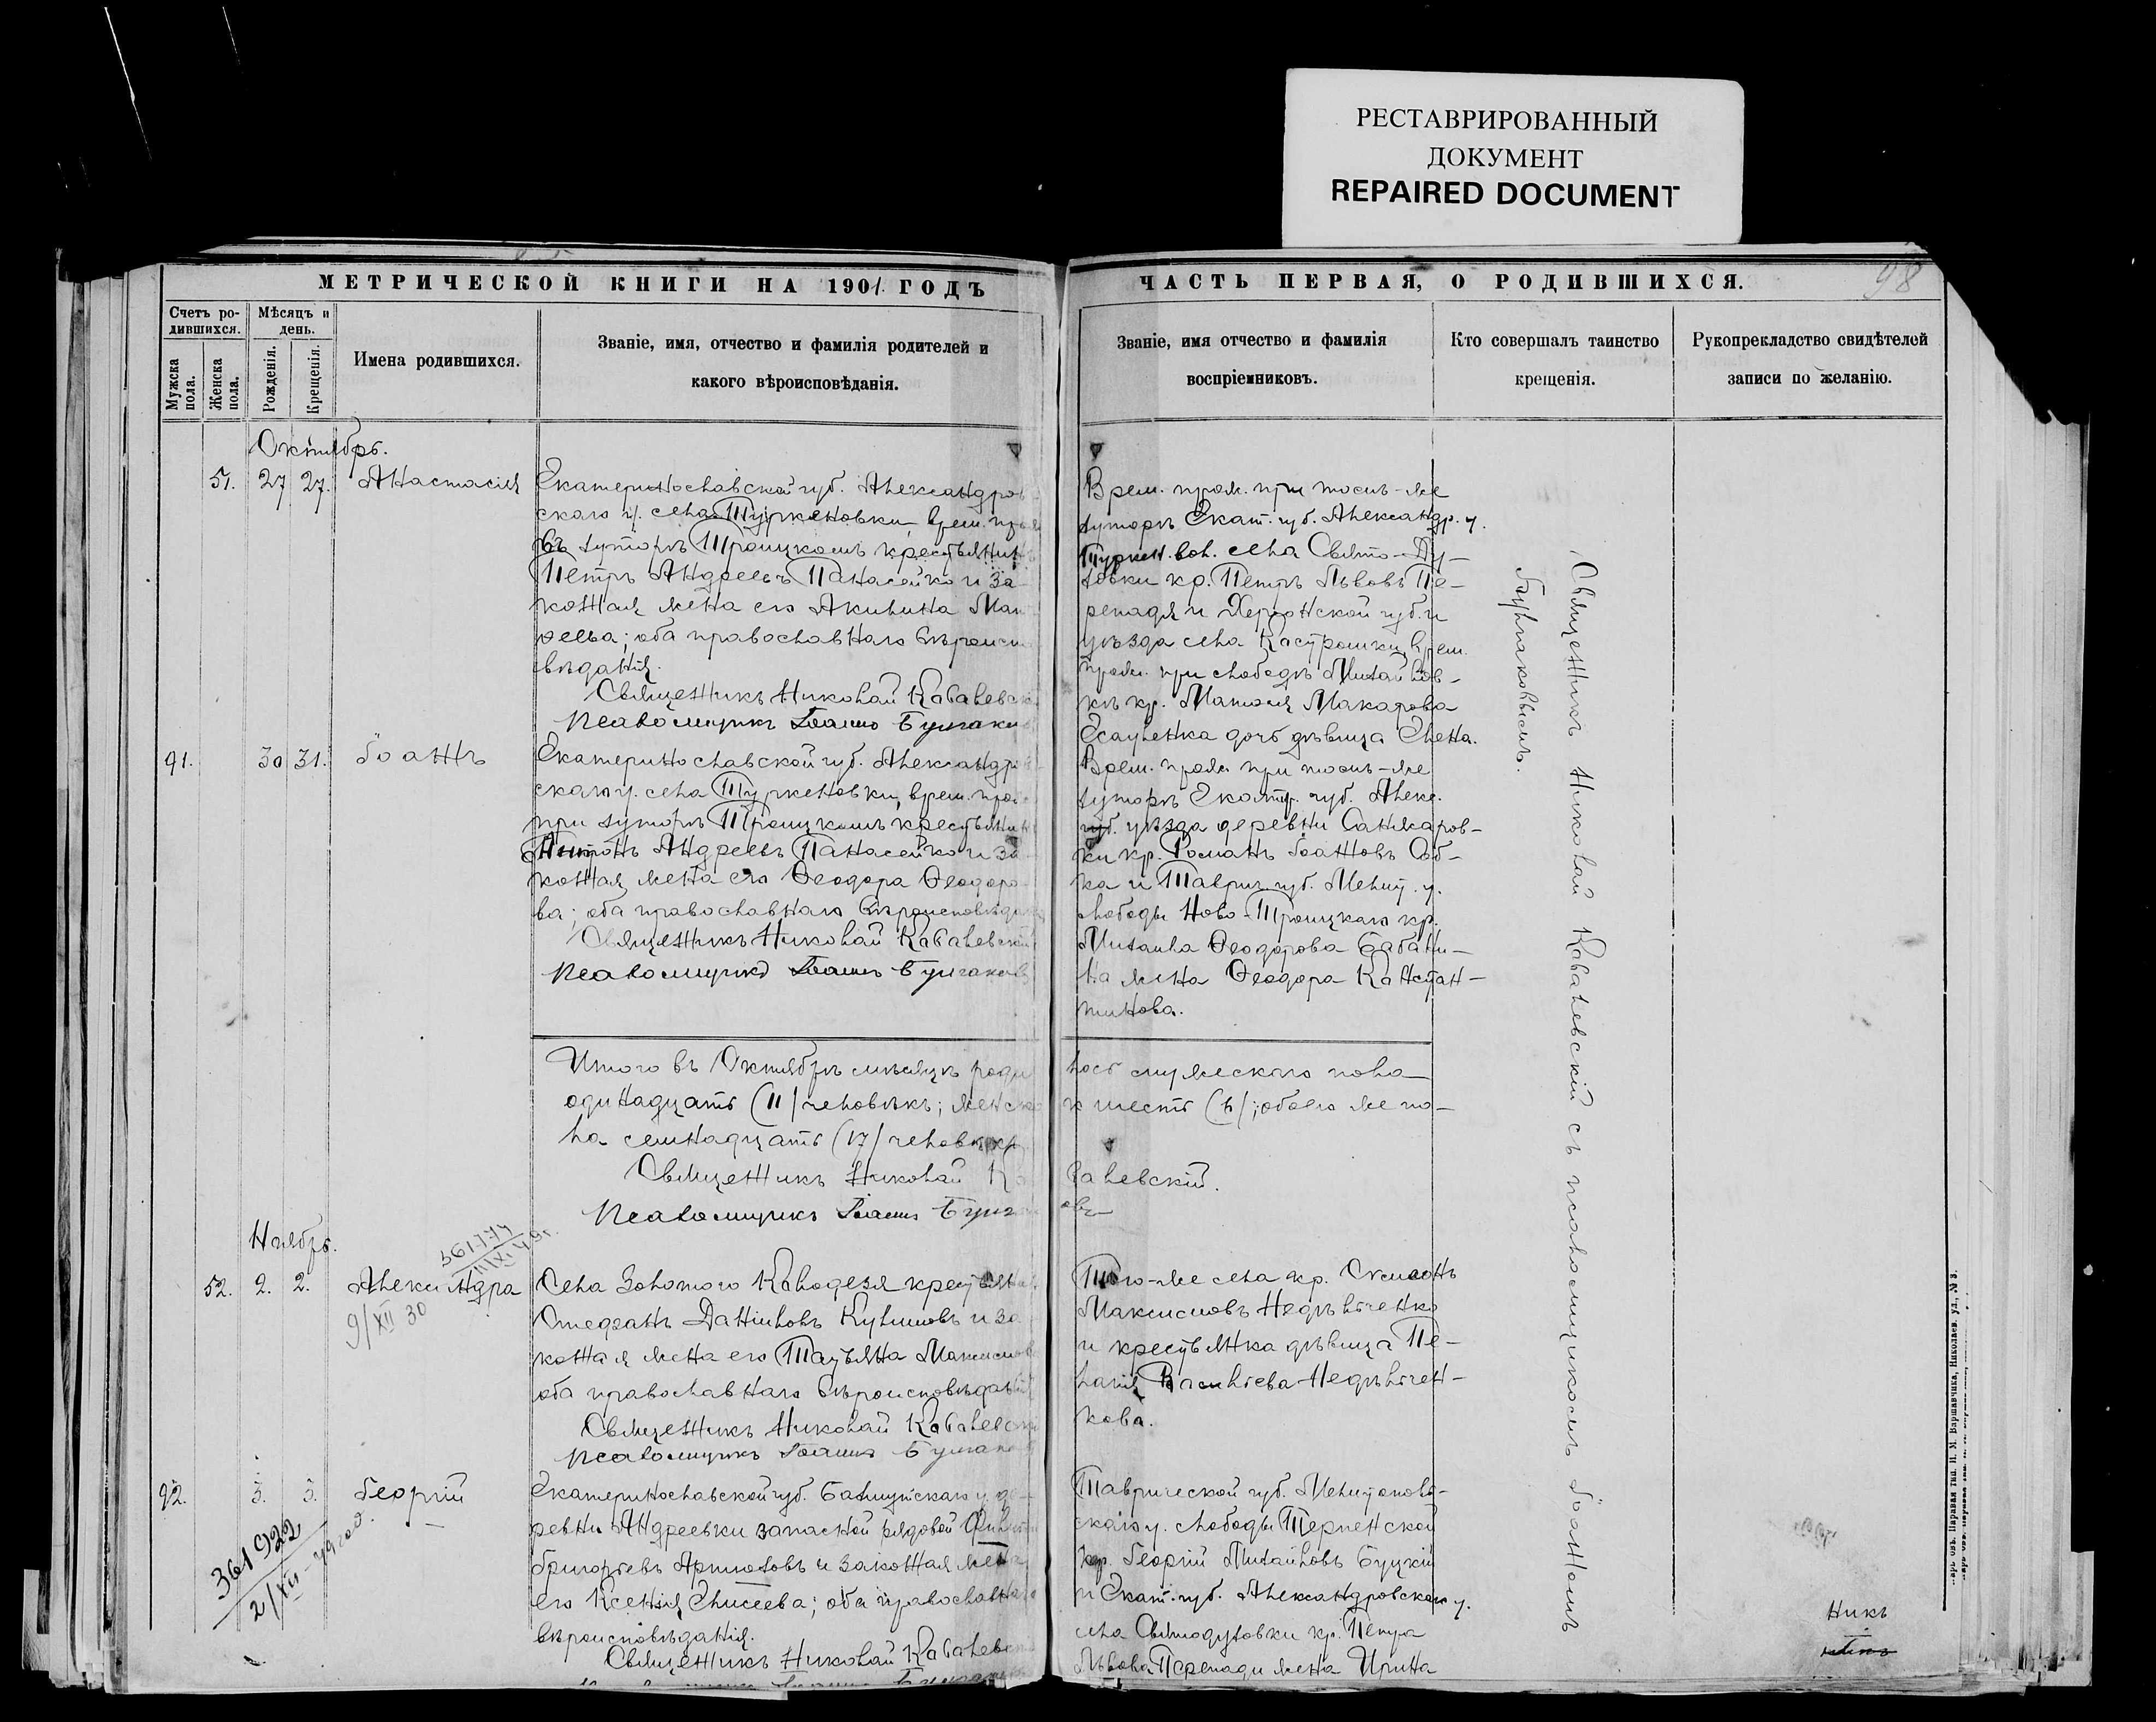 РЕСТАВРИРОВАННЫЙ
ДОКУМЕНТ
REPAIRED DOCUMENT
МЕТРИЧЕСКОЙ КНИГИ НА 1901 ГОДЪ
ЧАСТЬ ПЕРВАЯ, О РОДИВШИХСЯ.
98
Счетъ ро-
дившихся.
Мужска
пола.
Женска
пола.
Мѣсяцъ и
день.
Рожденія.
Крещенія.
Имена родившихся.
Званіе, имя, отчество и фамилія родителей и
какого вѣроисповѣданія.
Званіе, имя отчество и фамилія
воспріемниковъ.
Кто совершалъ таинство
крещенія.
Рукопрекладство свидѣтелей
записи по желанію.
Октябрь.
51. 27 27. Анастасія
Екатеринославской губ. Александров-
скаго у. села Туркеновки, врем. прож
въ хуторѣ Троицкомъ крестьянинъ
Петръ Андреевъ Панасейко и за-
конная жена его Акилина Мат
ѳеева; оба православнаго вѣроиспо
вѣданія.
Священникъ Николай Ковалевскі
Псаломщикъ Іоаннъ Булгаков
Врем. прож. при томъ-же
хуторѣ Екат. губ. Александр. у.
Туркен. вол. села Свято-Ду-
ховки кр. Петръ Львовъ Пе-
репадя и Херсонской губ. и
уѣзда села Костромки, врем.
прож. при слободѣ Михайлов-
кѣ кр. Матѳія Макарова
Есауленка дочь дѣвица Елена.
91. 30 31. Іоаннъ
Екатеринославской губ. Александров
скаго у. села Туркеновки, врем. прож
при хуторѣ Троицкомъ крестьянинъ
Антонъ Андреевъ Панасейко и за-
конная жена его Ѳеодора Ѳеодоро
ва; оба православнаго вѣроисповѣдан
Священникъ Николай Ковалевскій
Псаломщикъ Іоаннъ Булгаковъ
Врем. прож. при томъ-же
хуторѣ Екатр. губ. Алекс.
губ. уѣзда деревни Санжаров-
ки кр. Романъ Іоанновъ Соб-
ка и Таврич. губ. Мелит. у.
слободы Ново-Троицкаго кр.
Михаила Ѳеодорова Бабани-
на жена Ѳеодора Констан-
тинова.
Итого въ Октябрѣ мѣсяцѣ роди
лось мужескаго пола
одинадцать (11) человѣкъ; женска
го шесть (6); обоего же по-
ла семнадцать (17) человѣкъ
Священникъ Николай Ко
валевскій.
Псаломщикъ Іоаннъ Булга
овъ
Ноябрь.
52. 2. 2. Александра
9/XII 30
Села Золотого Колодезя крестьянин
Стефанъ Даніиловъ Куликовъ и за
конная жена его Татьяна Максимова
оба православнаго вѣроисповѣданія
Священникъ Николай Ковалевскі
Псаломщикъ Іоаннъ Булгаков
Того-же села кр. Симеонъ
Максимовъ Недѣльченко
и крестьянка дѣвица Пе-
лагія Васильева Недѣльчен-
кова.
92. 3. 3. Георгій
361922
Екатеринославской губ. Бахмутскаго у. де-
ревни Андреевки запасной рядовой Филип
Григорьевъ Артюховъ и законная жена
его Ксенія Елисеева; оба православнаго
вѣроисповѣданія.
Священникъ Николай Ковалевск
Таврической губ. Мелитополь-
скаго у. слободы Терпенской
кр. Георгій Михайловъ Буцкій
и Екат. губ. Александровскаго у.
села Святодуховки кр. Петра
Львова Перепади жена Ирина
Священникъ Николай Ковалевскій съ псаломщикомъ Іоанномъ
Булгаковымъ.
Никъ